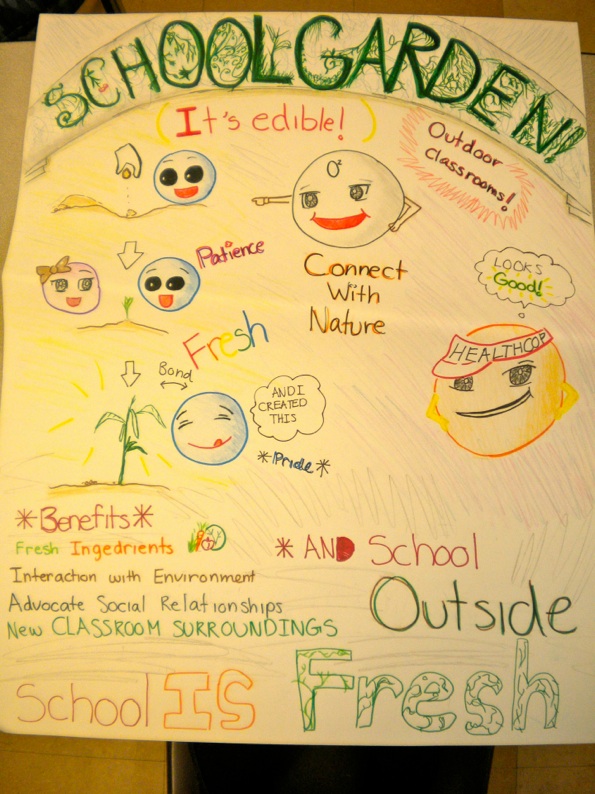 SCHOOL GARDEN!
(It's edible!)
Outdoor
classrooms!
O²
Patience
Connect
With
Nature
LOOKS
Good!
HEALTHCOP
Fresh
Bond
AND I
CREATED
THIS
*Pride*
*Benefits*
Fresh Ingedrients
Interaction with Environment
Advocate Social Relationships
New CLASSROOM SURROUNDINGS
* AND School
Outside
School IS Fresh